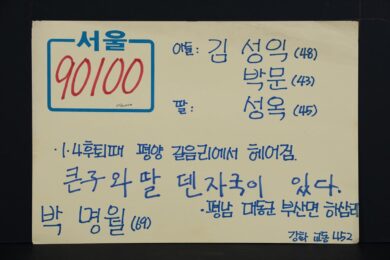 서울
90100
아들: 김 성익 (48)
박문 (43)
딸: 성옥 (45)
·1.4후퇴때 평양 길음리에서 헤어짐.
큰누와 딸 덴자국이 있다.
박 명월 (69)
·평남 대동군 부산면 하삼리
강화 교동 452